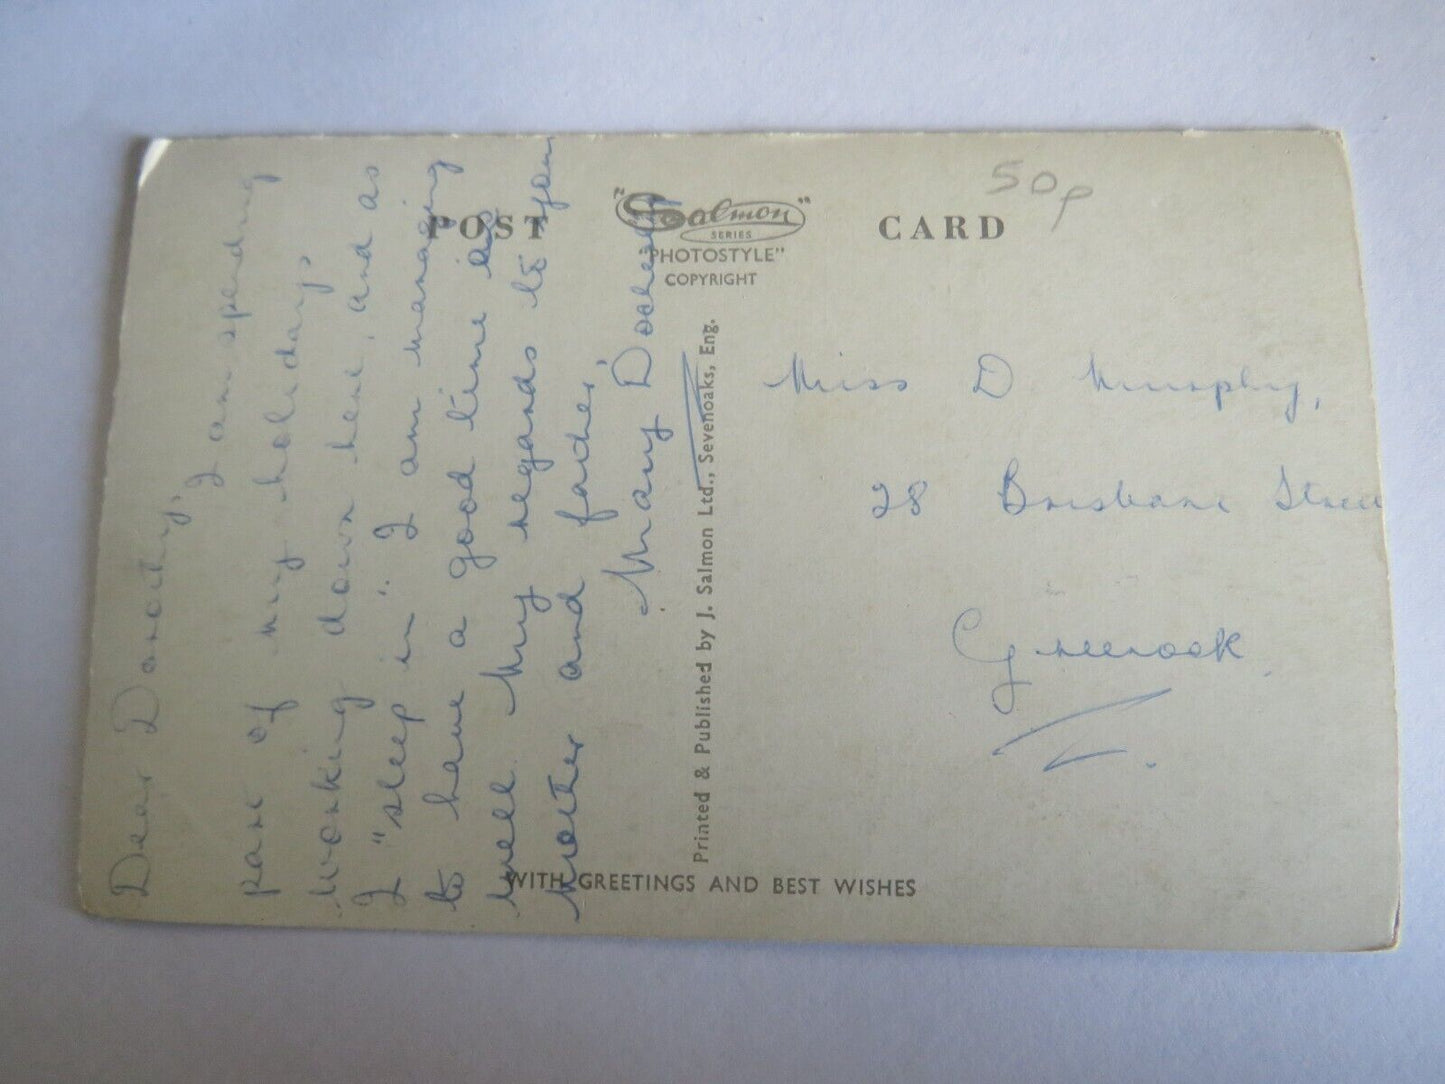 Dear Dorothy,
I am spending
part of my holidays
working down here, and as
I "sleep in". I am managing
to have a good time as
well. My regards to your
Mother and father,
Mary
POST CARD
"Salmon"
SERIES
"PHOTOSTYLE"
COPYRIGHT
50p
Printed & Published by J. Salmon Ltd., Sevenoaks, Eng.
Miss D Murphy,
28 Brisbane Street
Greenock.
WITH GREETINGS AND BEST WISHES